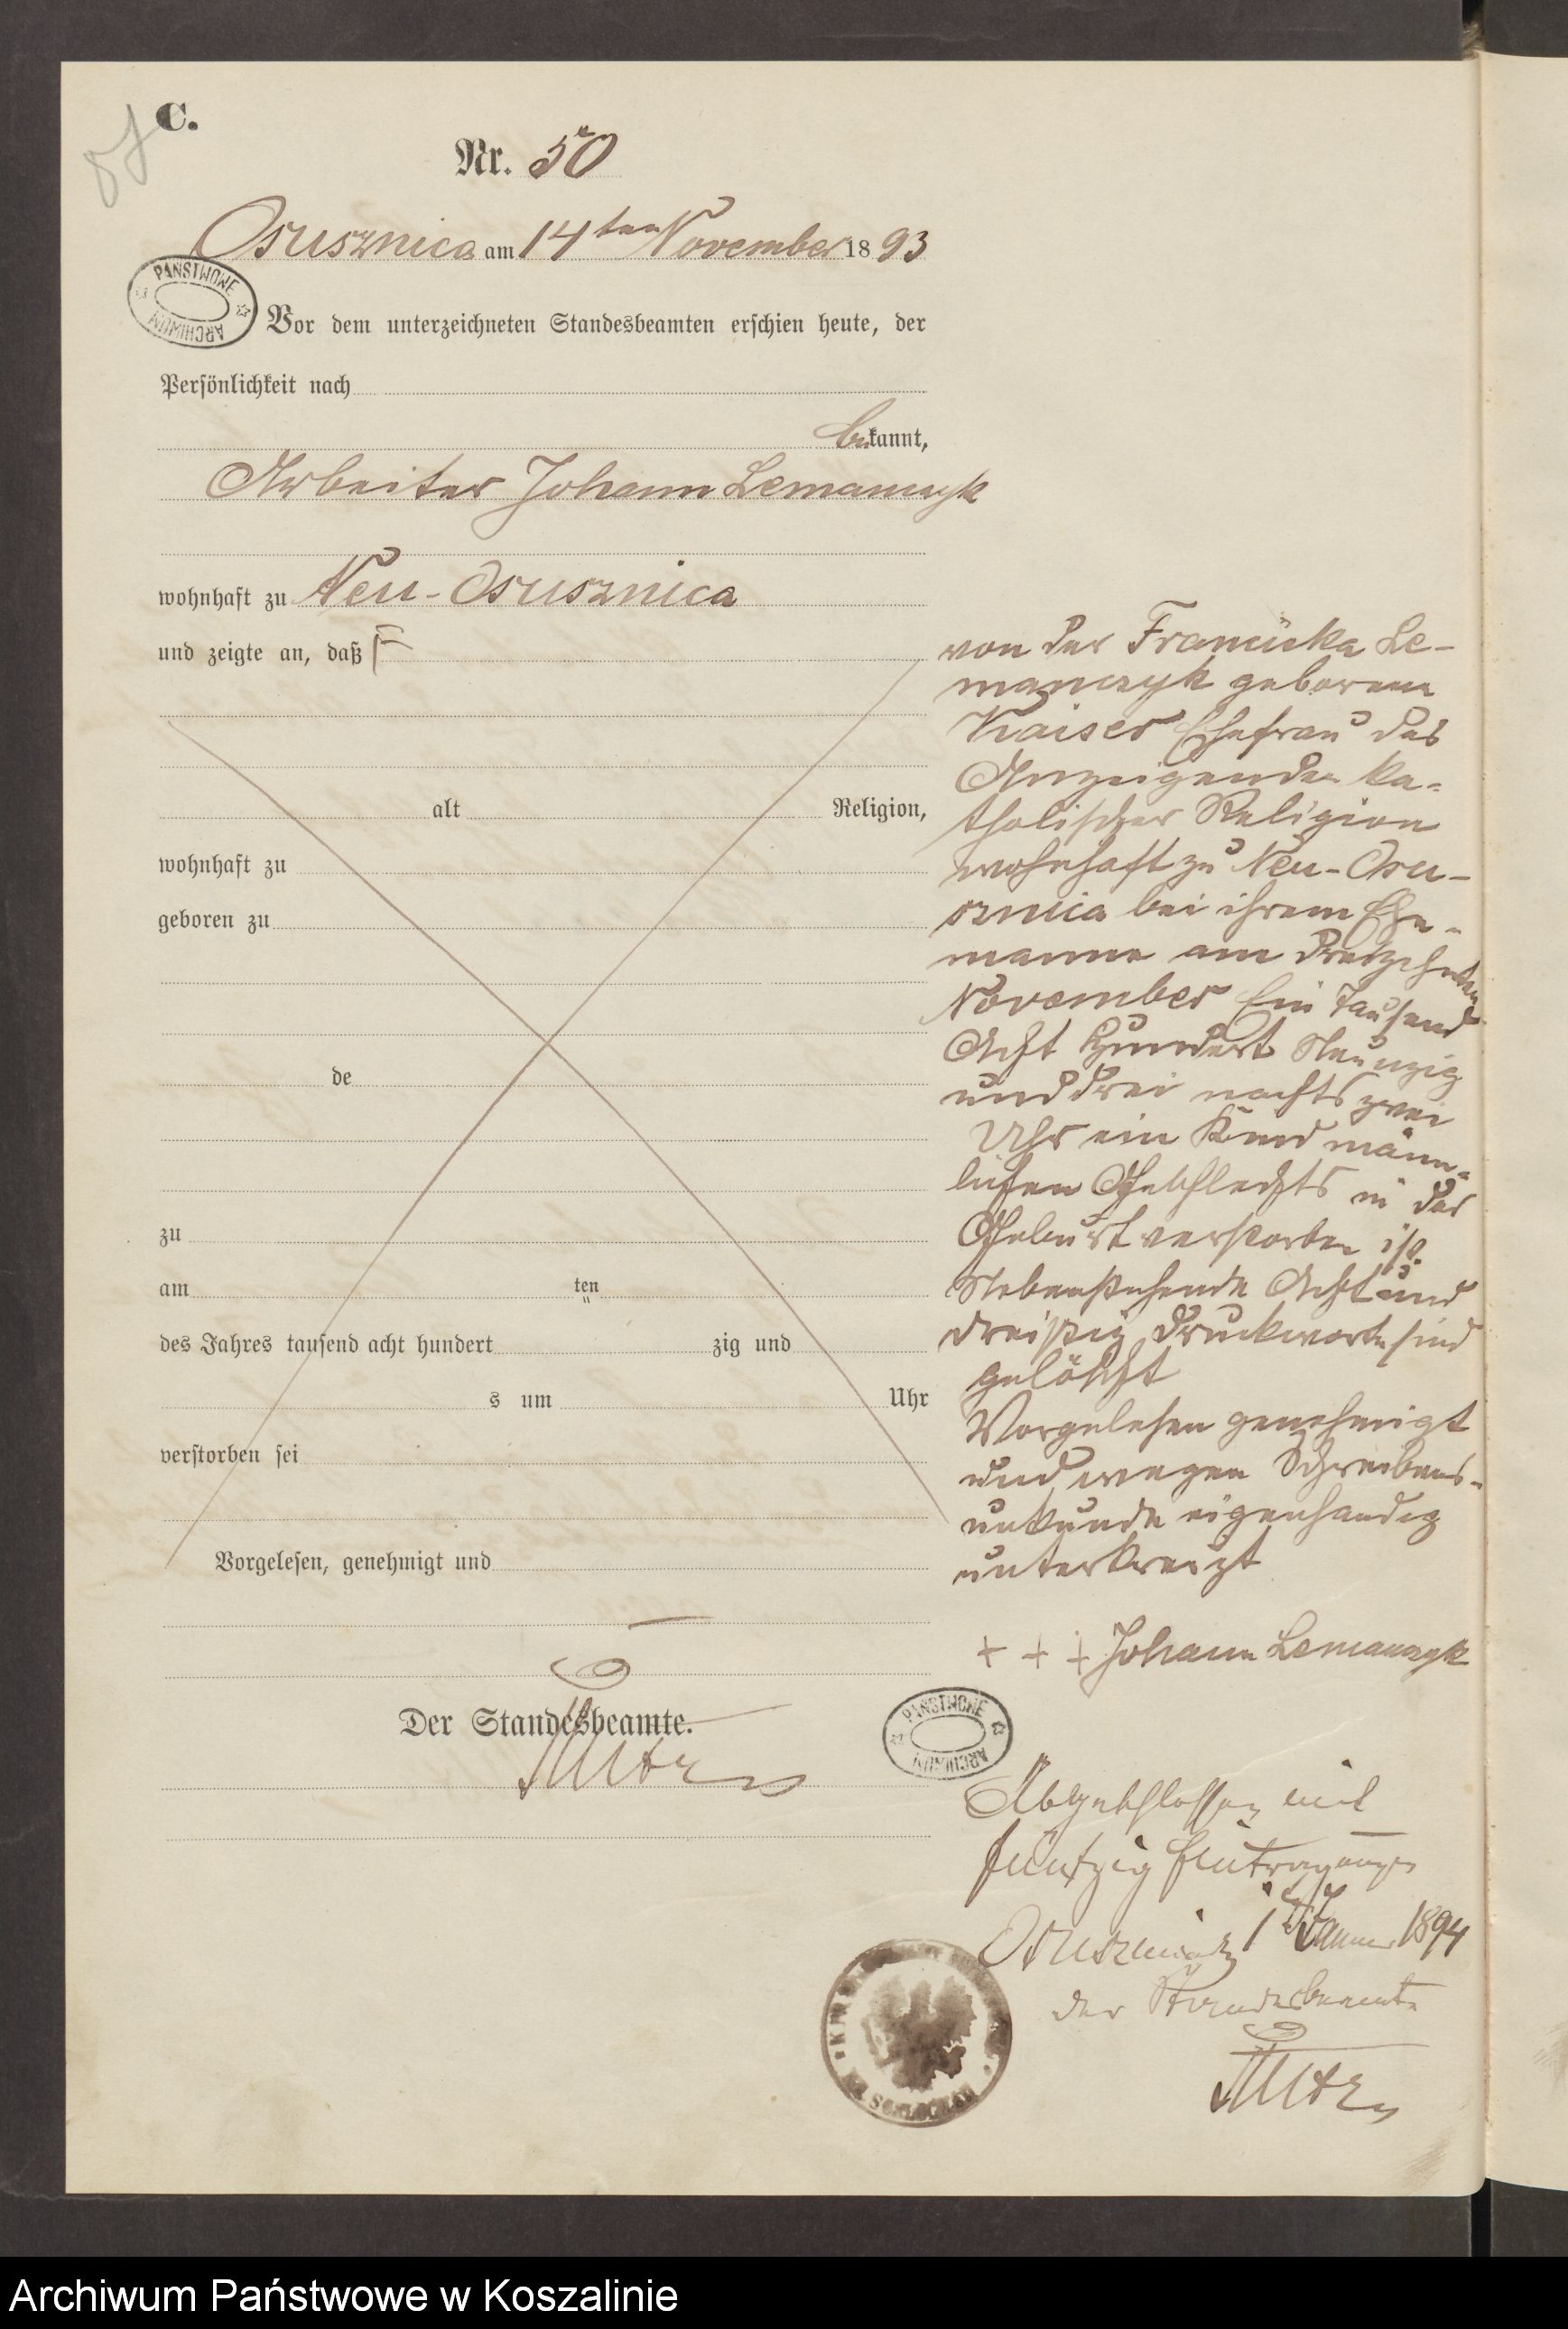 C.
Nr. 50
Osusznica am 14ten November 1893
PAŃSTWOWE ARCHIWUM
Vor dem unterzeichneten Standesbeamten erschien heute, der
Persönlichkeit nach
bekannt,
Arbeiter Johann Lemanczyk
wohnhaft zu Neu-Osusznica
und zeigte an, daß
alt Religion,
wohnhaft zu
geboren zu
de
zu
am ten
des Jahres tausend acht hundert zig und
s um Uhr
verstorben sei
Vorgelesen, genehmigt und
Der Standesbeamte.
von der Franciska Le-
manczyk geborene
Kaiser Ehefrau des
Anzeigenden ka-
tholischer Religion
wohnhaft zu Neu-Osu-
sznica bei ihrem Ehe-
manne am dreizehnten
November Ein Tausend
Acht Hundert Neunzig
und drei nachts zwei
Uhr ein Kind männ-
lichen Geschlechts in der
Geburt verstorben ist.
Nebenstehende Acht und
dreißig Druckworte sind
gelöscht
Vorgelesen genehmigt
und wegen Schreibens-
unkunde eigenhandig
unterkreuzt
+ + + Johann Lemanczyk
PAŃSTWOWE ARCHIWUM
Abgeschlossen mit
fünfzig Eintragungen
Osusznica 1ten Januar 1894
der Standesbeamte
SCHLOCHAU
Archiwum Państwowe w Koszalinie